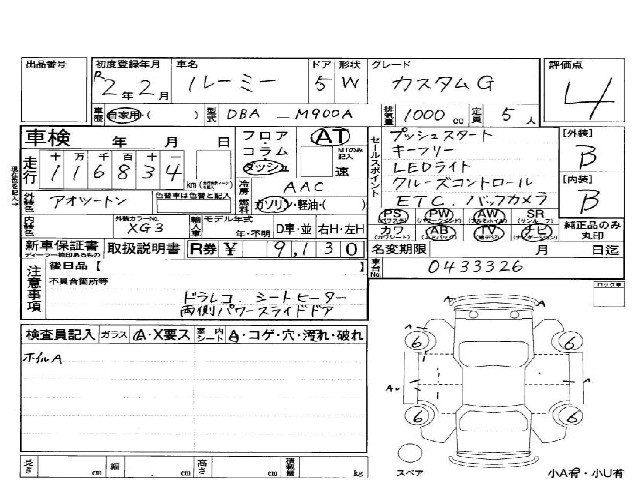 出品番号 初度登録年月 車名 ドア 形状 グレード 評価点
R2年2月 ルーミー 5 W カスタムG 4
車歴 自家用・( ) 型式 DBA-M900A 排気量 1000cc 定員 5人
車検 年 月 日 フロア コラム ダッシュ AT MTのみ記入 速
走行 十万千百十一 116834 km
冷房 AAC
燃料 ガソリン・軽油・( )
セールスポイント
プッシュスタート
キーフリー
LEDライト
クルーズコントロール
ETC. バックカメラ
[外装] B
[内装] B
外装色 アオツートン 色替車は色替と記入
内装色 外装カラーNo. XG3 輸入車 モデル年式 年・不明 D車・並 右H・左H
PS PW AW SR
カワ AB TV ナビ 純正品のみ丸印
新車保証書 取扱説明書 R券 ¥ 9,130 名変期限 月 日迄
ディーラー格印あるもの
車台No. 0433326
注意事項 後日品【 】
不具合箇所等
ドラレコ シートヒーター
両側パワースライドドア
ロック車
検査員記入 ガラス A・X要ス 室内シート A・コゲ・穴・汚れ・破れ
ホイルA
A A
6 6
A A
6 6
A A
長さ cm 幅 cm 高さ cm 積載量 kg
スペア 小A有・小U有